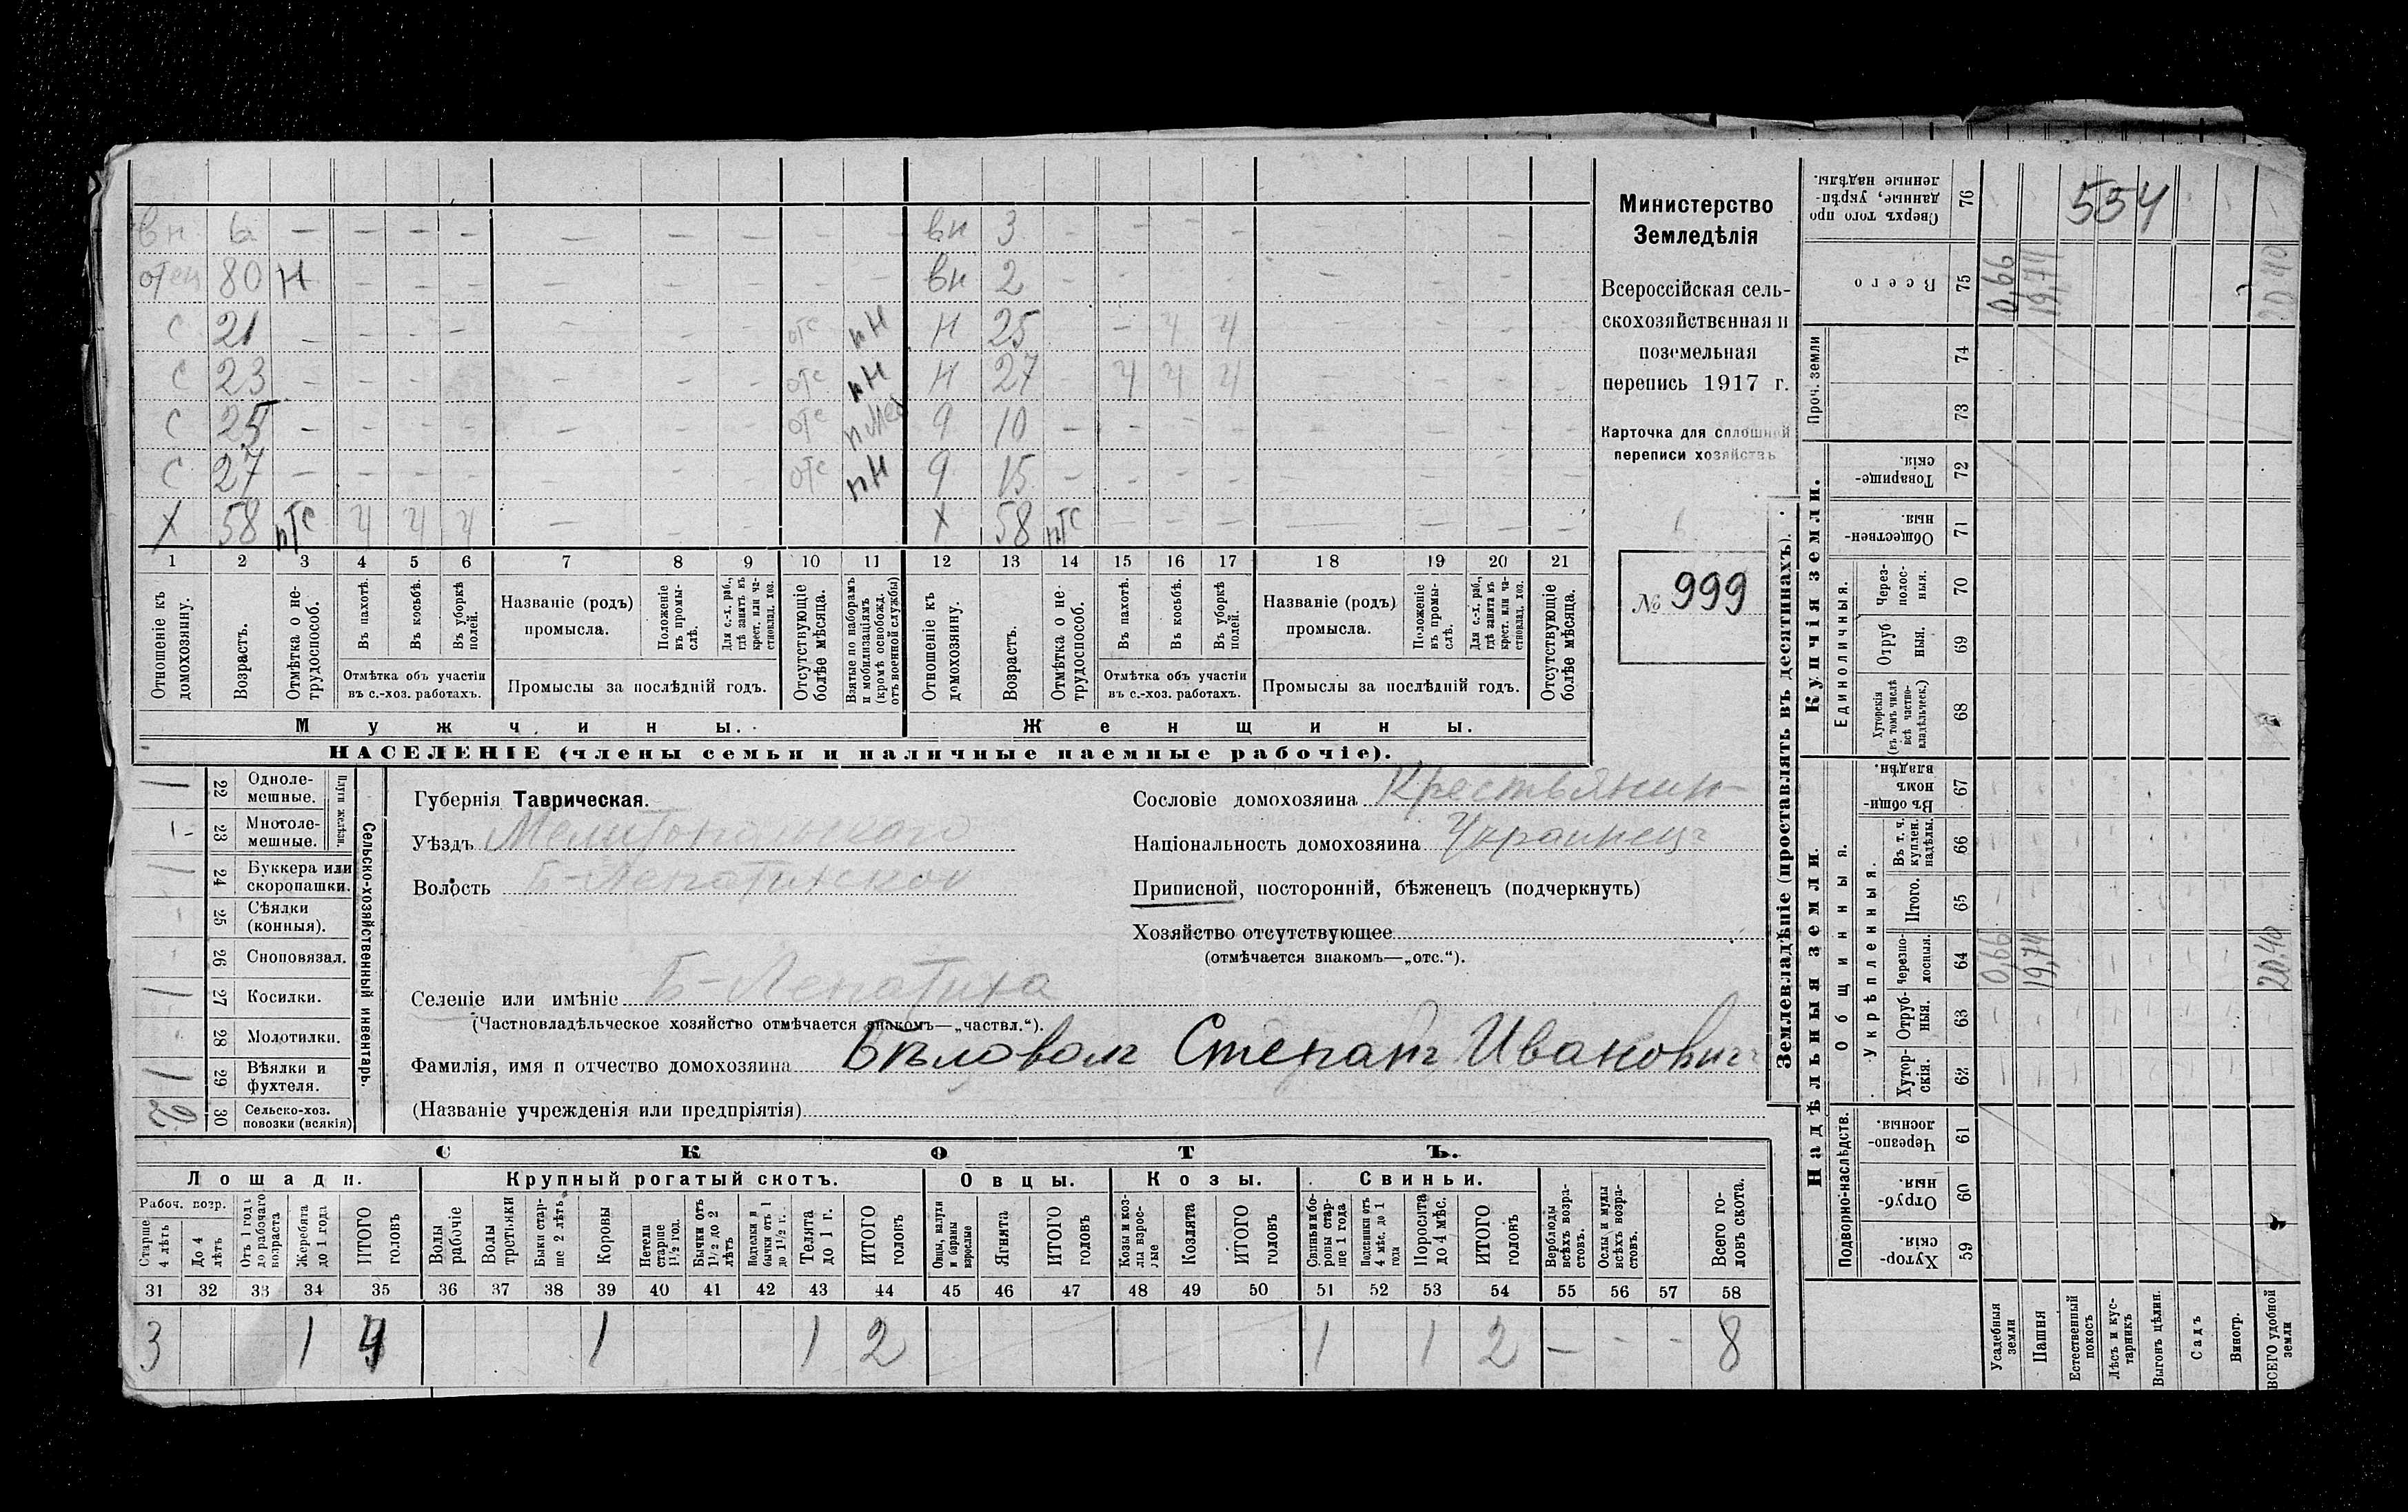 вн 6 — — — — — — — — — вн 3 - - - - - - - -
отец 80 Н — — — — — — - - вн 2 - - - - - - - -
с 21 - - - - - - - отс пН Н 25 - ч ч - - - -
с 23 - - - - - - - отс пН Н 27 - ч ч ч - - - -
с 25 - - - - - - - отс 9 10 - - - - - - - -
с 27 - - - - - - - отс пН 9 15 - - - - - - - -
Х 58 птс ч ч ч — - - Х 58 птс - - - - - - -
1 2 3 4 5 6 7 8 9 10 11 12 13 14 15 16 17 18 19 20 21
Отношеніе къ домохозяину.
Возрастъ.
Отмѣтка о не-трудоспособ.
Въ пахотѣ.
Въ косьбѣ.
Въ уборкѣ полей.
Отмѣтка объ участіи
въ с.-хоз. работахъ.
Названіе (родъ)
промысла.
Положеніе въ промы-слѣ.
Для с.-х. раб., гдѣ занятъ въ крест. или ча-стновлад. хоз.
Промыслы за послѣдній годъ.
Отсутствующіе болѣе мѣсяца.
Взятые по наборамъ и мобилизаціямъ (кромѣ освобожд. отъ военной службы)
Отношеніе къ домохозяину.
Возрастъ.
Отмѣтка о не-трудоспособ.
Въ пахотѣ.
Въ косьбѣ.
Въ уборкѣ полей.
Отмѣтка объ участіи
въ с.-хоз. работахъ.
Названіе (родъ)
промысла.
Положеніе въ промы-слѣ.
Для с.-х. раб., гдѣ занята въ крест. или ча-стновлад. хоз.
Промыслы за послѣдній годъ.
Отсутствующіе болѣе мѣсяца.
Мужчины.
Женщины.
НАСЕЛЕНІЕ (члены семьи и наличные наемные рабочіе).
Министерство
Земледѣлія
Всероссійская сель-
скохозяйственная и
поземельная
перепись 1917 г.
Карточка для сплошной
переписи хозяйствъ
№ 999
1 22 Одноле-мешные.
1- 23 Многоле-мешные.
Плуги желѣзн.
1 24 Буккера или скоропашки.
- 25 Сѣялки (конныя).
- 26 Сноповязал.
1 27 Косилки.
- 28 Молотилки.
1 29 Вѣялки и фухтеля.
30 Сельско-хоз. повозки (всякія)
Сельско-хозяйственный инвентарь.
Губернія Таврическая.
Уѣздъ Мелитопольскаго
Волость Б-Лепатихской
Сословіе домохозяина Крестьянин
Національность домохозяина Украинецъ
Приписной, посторонній, бѣженецъ (подчеркнуть)
Хозяйство отсутствующее
(отмѣчается знакомъ—„отс.“).
Селеніе или имѣніе Б-Лепатиха
(Частновладѣльческое хозяйство отмѣчается знакомъ—„частвл.“).
Фамилія, имя и отчество домохозяина Бѣловол Степанъ Иванович
(Названіе учрежденія или предпріятія)
СКОТЪ.
Лошади.
Крупный рогатый скотъ.
Овцы.
Козы.
Свиньи.
Рабоч. возр.
Старше 4 лѣтъ
До 4 лѣтъ
Отъ 1 года до рабочаго возраста
Жеребята до 1 года
ИТОГО головъ
Волы рабочіе
Волы третьяки
Быки стар-ше 2 лѣтъ
Коровы
Нетели старше 1½ год.
Бычки отъ 1½ до 2 лѣтъ
Подтелки и бычки отъ 1 до 1½ г.
Телята до 1 г.
ИТОГО головъ
Овцы, валухи и бараны взрослые
Ягнята
ИТОГО головъ
Козы и коз-лы взрос-лые
Козлята
ИТОГО головъ
Свиньи и бо-ровы стар-ше 1 года
Подсвинки отъ 4 мѣс. до 1 года
Поросята до 4 мѣс.
ИТОГО головъ
Верблюды всѣхъ возра-стовъ.
Ослы и мулы всѣхъ возра-стовъ.
Всего го-ловъ скота.
31 32 33 34 35 36 37 38 39 40 41 42 43 44 45 46 47 48 49 50 51 52 53 54 55 56 57 58
3 1 4 1 1 2 1 1 2 — - - 8
Землевладѣніе (проставлять въ десятинахъ).
Купчія земли.
Надѣльныя земли.
Сверхъ того про данные, укрѣп-ленные надѣлы. 76 554
Всего 75 0,66 19,74 20.40
Проч. земли
74
73
Товарище-скія. 72
Обществен-ныя. 71
Единоличныя.
Через-полос-ныя. 70
Отруб ныя. 69
Хуторскія (въ томъ числѣ всѣ частно-владѣльческ.) 68
Общинныя.
Въ общи-номъ владѣн. 67
Укрѣпленныя.
Въ т. ч. куплен. надѣлы. 66
Итого. 65
Черезпо-лосныя. 64 0,66 19,74 20.40
Отруб-ныя. 63
Хутор-скія. 62
Подворно-наслѣдств.
Черезпо-лосныя. 61
Отруб-ныя. 60
Хутор-скія. 59
Усадебныя земли
Пашня
Естественный покосъ
Лѣсъ и кус-тарникъ
Выгонъ цѣлин.
Садъ
Виногр.
ВСЕГО удобной земли